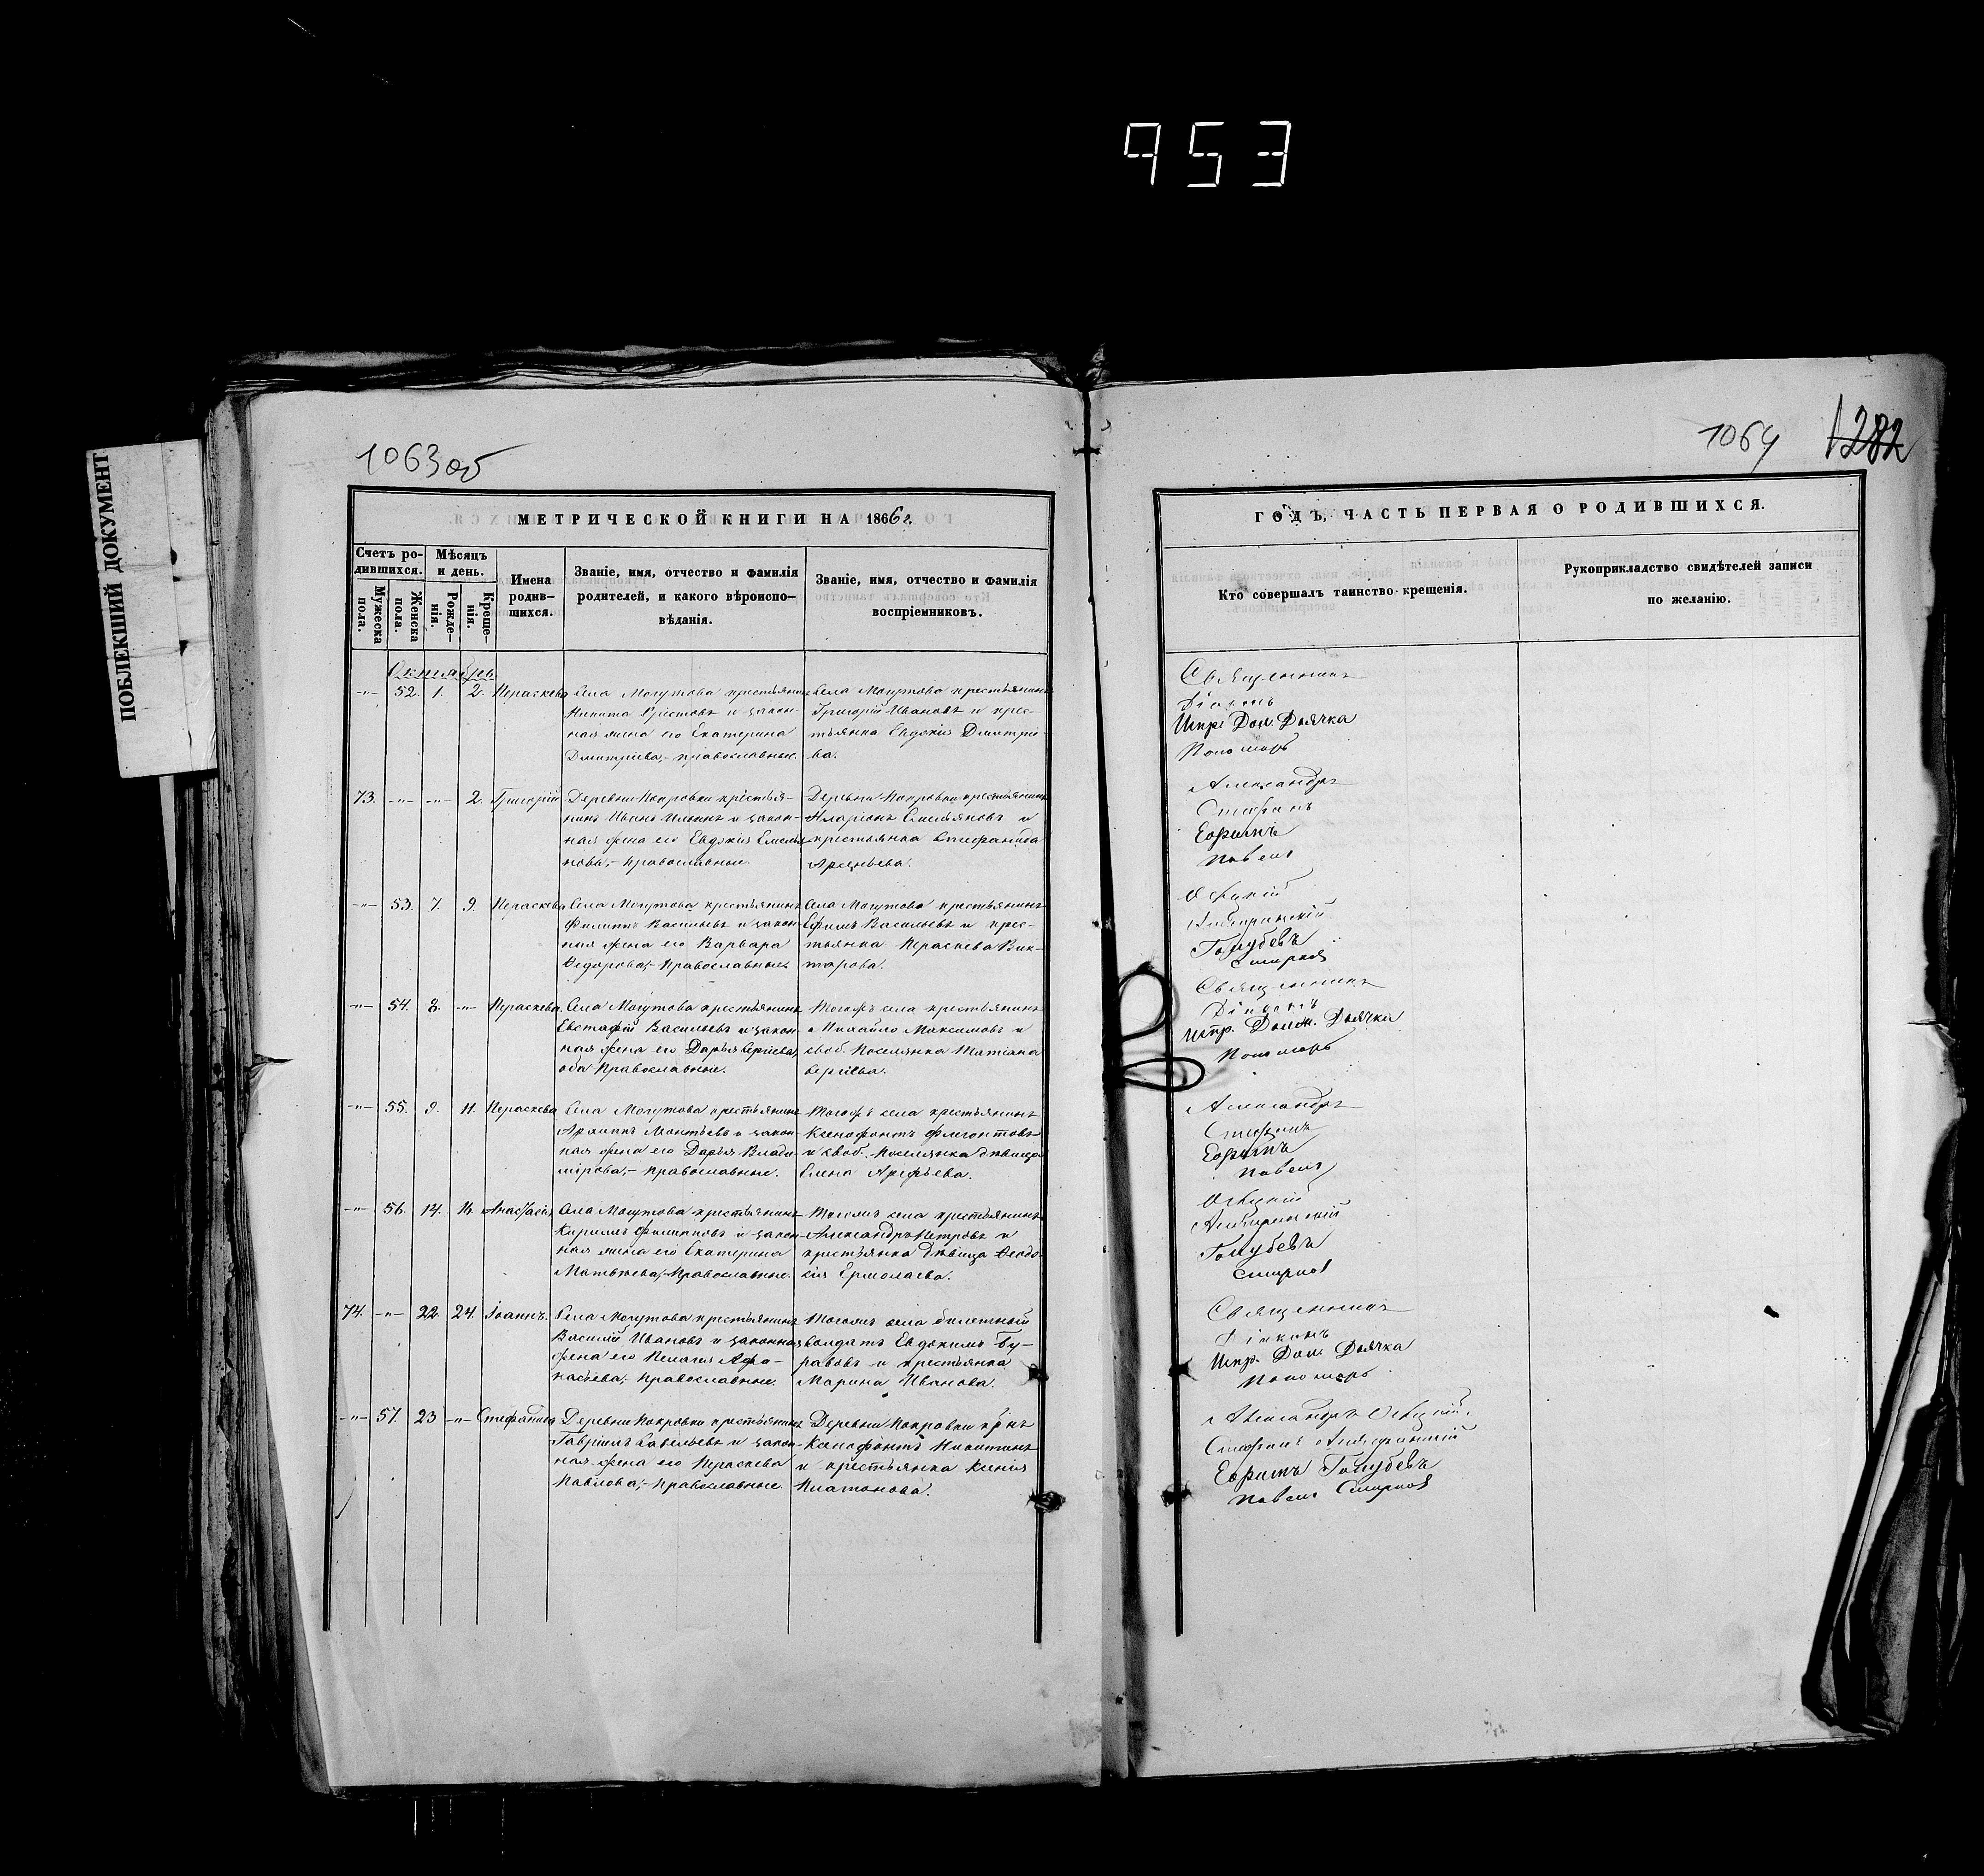 953
ПОБЛЕКШИЙ ДОКУМЕНТ
1063об
МЕТРИЧЕСКОЙ КНИГИ НА 1866 г.
Счетъ родившихся.
Мужеска пола.
Женска пола.
Мѣсяцъ и день.
Рожденія.
Крещенія.
Имена родившихся.
Званіе, имя, отчество и фамилія родителей, и какого вѣроисповѣданія.
Званіе, имя, отчество и фамилія воспріемниковъ.
Октябрь
-"- 52. 1. 2. Параскева
Села Могутова крестьянинъ
Никита Христовъ и закон-
ная жена его Екатерина
Дмитріева,- православные.
Села Могутова крестьянинъ
Григорій Ивановъ и крес-
тьянка Евдокія Дмитріе-
ва.
73. -"- -"- 2. Григорій
Деревни Покровки крестья-
нинъ Иванъ Ильинъ и закон-
ная жена его Евдокія Емелья-
нова,- православные.
Деревни Покровки крестьянинъ
Иларіонъ Емельяновъ и
крестьянка Стефанида
Арсеньева.
-"- 53. 7. 9. Параскева
Села Могутова крестьянинъ
Филиппъ Васильевъ и закон-
ная жена его Варвара
Ѳедорова,- православные.
Села Могутова крестьянинъ
Ефимъ Васильевъ и крес-
тьянка Параскева Вик-
торова.
-"- 54. 8. -"- Параскева.
Села Могутова крестьянинъ
Евстафій Васильевъ и закон-
ная жена его Дарья Сергіева,
оба православные.
Тогожъ села крестьянинъ
Михайло Максимовъ и
своб. поселянка Татіана
Сергіева.
-"- 55. 9. 11. Параскева
Села Могутова крестьянинъ
Архиппъ Леонтьевъ и закон-
ная жена его Дарья Влади-
мірова,- православные.
Тогожъ села крестьянинъ
Ксенофонтъ Флегонтовъ
и своб. поселянка дѣвица
Елена Арефьева.
-"- 56. 14. 16. Анастасія
Села Могутова крестьянинъ
Кирилъ Филипповъ и закон-
ная жена его Екатерина
Матвѣева,- православные.
Тогожъ села крестьянинъ
Александръ Петровъ и
крестьянка дѣвица Ѳеодо-
сія Ермолаева.
74. -"- 22. 24. Іоаннъ.
Села Могутова крестьянинъ
Василій Ивановъ и законная
жена его Пелагія Афа-
насьева,- православные.
Тогожъ села билетный
солдатъ Евдокимъ Бу-
равовъ и крестьянка
Марина Иванова.
-"- 57. 23 -"- Стефанида
Деревни Покровки крестьянинъ
Гавріилъ Савельевъ и закон-
ная жена его Параскева
Павлова,- православные.
Деревни Покровки кр-нъ
Ксенофонтъ Никитинъ
и крестьянка Ксенія
Платонова.
1064 1282
ГОДЪ, ЧАСТЬ ПЕРВАЯ О РОДИВШИХСЯ.
Кто совершалъ таинство крещенія.
Рукоприкладство свидѣтелей записи по желанію.
Священникъ
Діаконъ
Испр. Дол. Дьячка
Пономарь
Александръ
Стефанъ
Ефимъ
Павелъ
Голубевъ
Смирнов
Священникъ
Діаконъ
Испр. Долж. Дьячка
Пономарь
Александръ
Стефанъ
Ефимъ
Павелъ
Голубевъ
Смирнов
Священникъ
Діаконъ
Испр. Дол. Дьячка
Пономарь
Александръ
Стефанъ
Ефимъ Голубевъ
Павелъ Смирнов